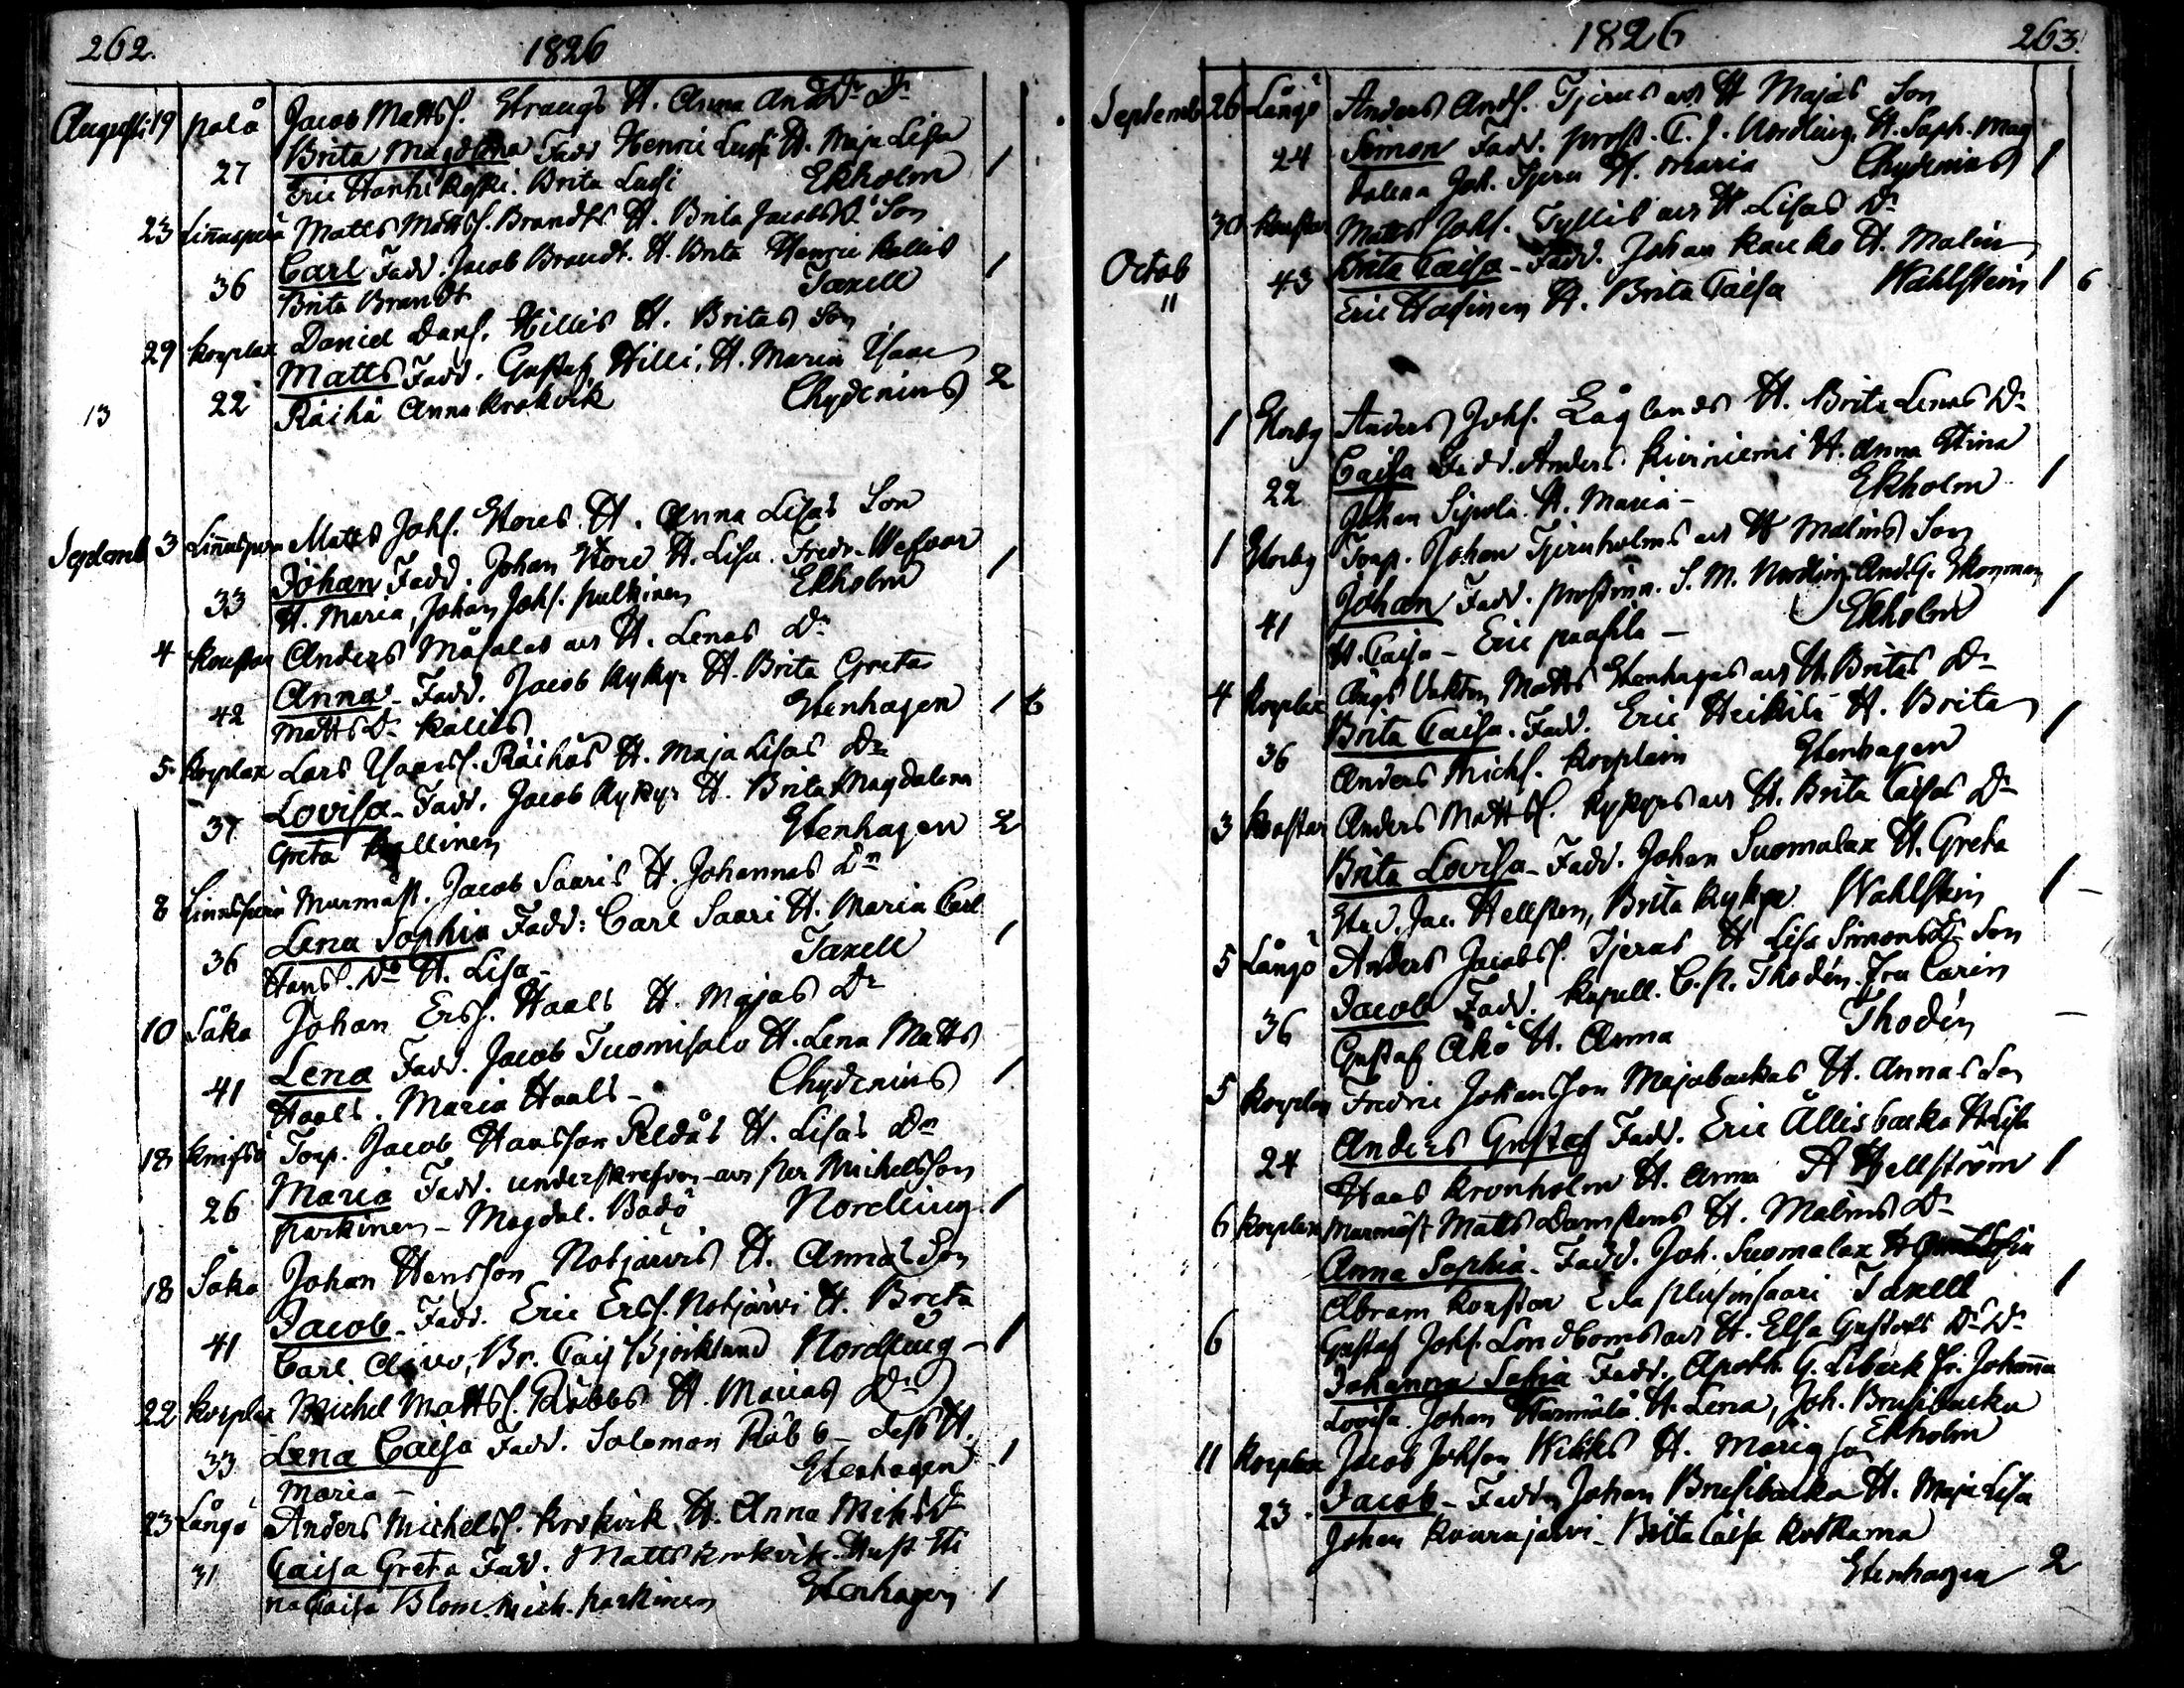 262. 1826
Augusti 19 palå Jacob Mattss. Strangs H. Anna AndsDr Dr
Brita Magdlena Fadd Henric Lussi H. Maja Lisa
27 Eric Hanhikoski. Brita Lassi Ekholm 1
23 Linnusperä Matts Mattss. Brandts H. Brita JacobsDr Son
Carl Fadd. Jacob Brandt. H. Brita Henric Kallis
36 Brita Brandt Taxell 1
29 Korplax Daniel Dans. Hillis H. Britas Son
Matts Fadd. Gustaf Hilli, H. Maria Isaac
13 22 Räihä Anna Krokvik Chydenius 2
Septemb 3 Linnusperä Matts Johs. Stores H. Anna Lisas Son
Johan Fadd. Johan Store H. Lisa. Fredr.
33 H. Maria, Johan Johs. Pulkinen Ekholm 1
4 Kouftar Anders Måsalas H. Lenas Dr
Anna - Fadd. Jacob Kykyr H. Brita Greta
42 MattsDr Kallis Stenhagen 1 6
5 Korplax Lars Isacss. Räihäs H. Maja Lisas Dr
Lovisa - Fadd. Jacob Kykyr H. Brita Magdalena
37 Greta Stenhagen 2
8 Linnusperä Murmäst. Jacob Saaris H. Johannas Dr
Lena Sophia Fadd: Carl Saari H. Maria Carl
36 Hans. Dr H. Lisa - Taxell 1
10 Såka Johan Erss. Haals H. Majas Dr
Lena Fadd. Jacob Tuomisalo H. Lena Matts
41 Haals. Maria Haals - Chydenius 1
18 Knifsö Torp. Jacob Hansson Peldås H. Lisas Dr
Maria Fadd. underskrefven Per Michelsson
26 Parkinen - Magdal. Bodö Nordling 1
18 Såka Johan Hansson Notjärvis H. Annas Son
Jacob - Fadd. Eric Erss. Notjärvi H. Brita
41 Carl Br. Cajs Björklund Nordling - 1
22 Korplax Michel Mattss. Räbbs H. Marias Dr
Lena Caisa Fadd. Salomon Räbb - dess H.
33 Maria - Stenhagen 1
23 Långö Anders Michelss. Krokvik H. Anna MichsDr
Caisa Greta Fadd. Matts Krokvik. Hust Sti
31 na Caisa Blom. Mich. Parkinen Stenhagen 1
1826 263.
Septemb 26 Långö Anders Ands. Tjerus H Majas Son
Simon Fadd. Prost. C. J. Nordling. H. Soph. Mag
24 dalena Joh. Tjeru H. Maria Chydenius 1
30 Matts Johs. Tyllis H. Lisas Dr
Octob 43 Brita Caisa - Fadd. Johan H. Malin
11 Eric Hasinen H. Brita Caisa Wahlstein 1 6
1 Storby Anders Johs. Låglands H. Brita Lenas Dr
Caisa Fadd. Anders Kiviniemi H. Anna Stina
22 Johan Sipola H. Maria - Ekholm 1
1 Storby Torp. Johan Tjernholms H Malins Son
Johan Fadd. Prostinn. S. M. Nordling. And. G. Skogman
41 H. Caisa - Eric Paasila - Ekholm 1
4 Korplax Ängs Vakten Matts Stenhagas H. Britas Dr
Brita Caisa. Fadd. Eric Heikilä H. Brita
36 Anders Michs. Korplein Stenhagen 1
3 Anders Mattss. Kykyrs H. Brita Caisas Dr
Brita Lovisa - Fadd. Johan Suomalax H. Greta
Stud. Jac. Hellsten, Brita Kykyr Wahlstein 1 -
5 Långö Anders Jacobss. Tjerus H Lisa SimonsDr Son
Jacob Fadd. Kapell. C. P. Thodén. Fru Carin
36 Gustaf Akö H. Anna Thodén -
5 Korplax Fredric Johansson Majabackas H. Annas Son
Anders Gustaf Fadd. Eric Ällisbacka H Lisa
24 Haas Kronholm H. Anna A Hellström 1
6 Korplax Murmäst Matts Damstens H. Malins Dr
Anna Sophia - Fadd. Joh. Suomalax H
Abram Kouftar Taxell 1
6 Gustaf Johs. Lindboms H. Elsa Gustafs Dr Dr
Johanna Sofia Fadd. Apoth. G. Libeck Fr. Johanna
Lovisa. Johan Härmälä H. Lena, Joh. Brusibacka
Ekholm
11 Korplax Jacob Johsson Wikks H. Marias Son
Jacob - Fadd. Johan Brusibacka H. Maja Lisa
23 Johan Kourajärvi - Brita Caisa Kotkama
Stenhagen 2